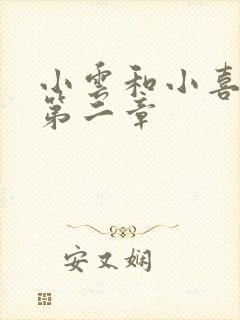 小雲和小喜
第二章
安又娴